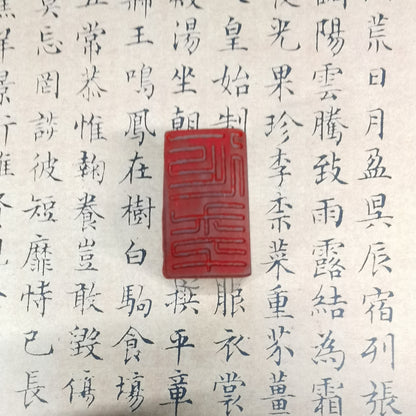 荒日月盈昃辰宿列張
調陽雲騰致雨露結為霜
光果珍李柰菜重芥薑
皇始制服衣裳
湯坐朝拱平章
王鳴鳳在樹白駒食場
五常恭惟鞠養豈敢毀傷
莫忘罔談彼短靡恃己長